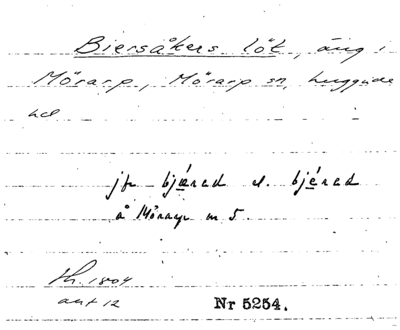 Biersåkers löt, äng i
Mörarp, Mörarp sn, Luggude
hd
jfr bjǽred el. bjéred
å Mörarp nr 5.
Sk. 1804
akt 12
Nr 5254.